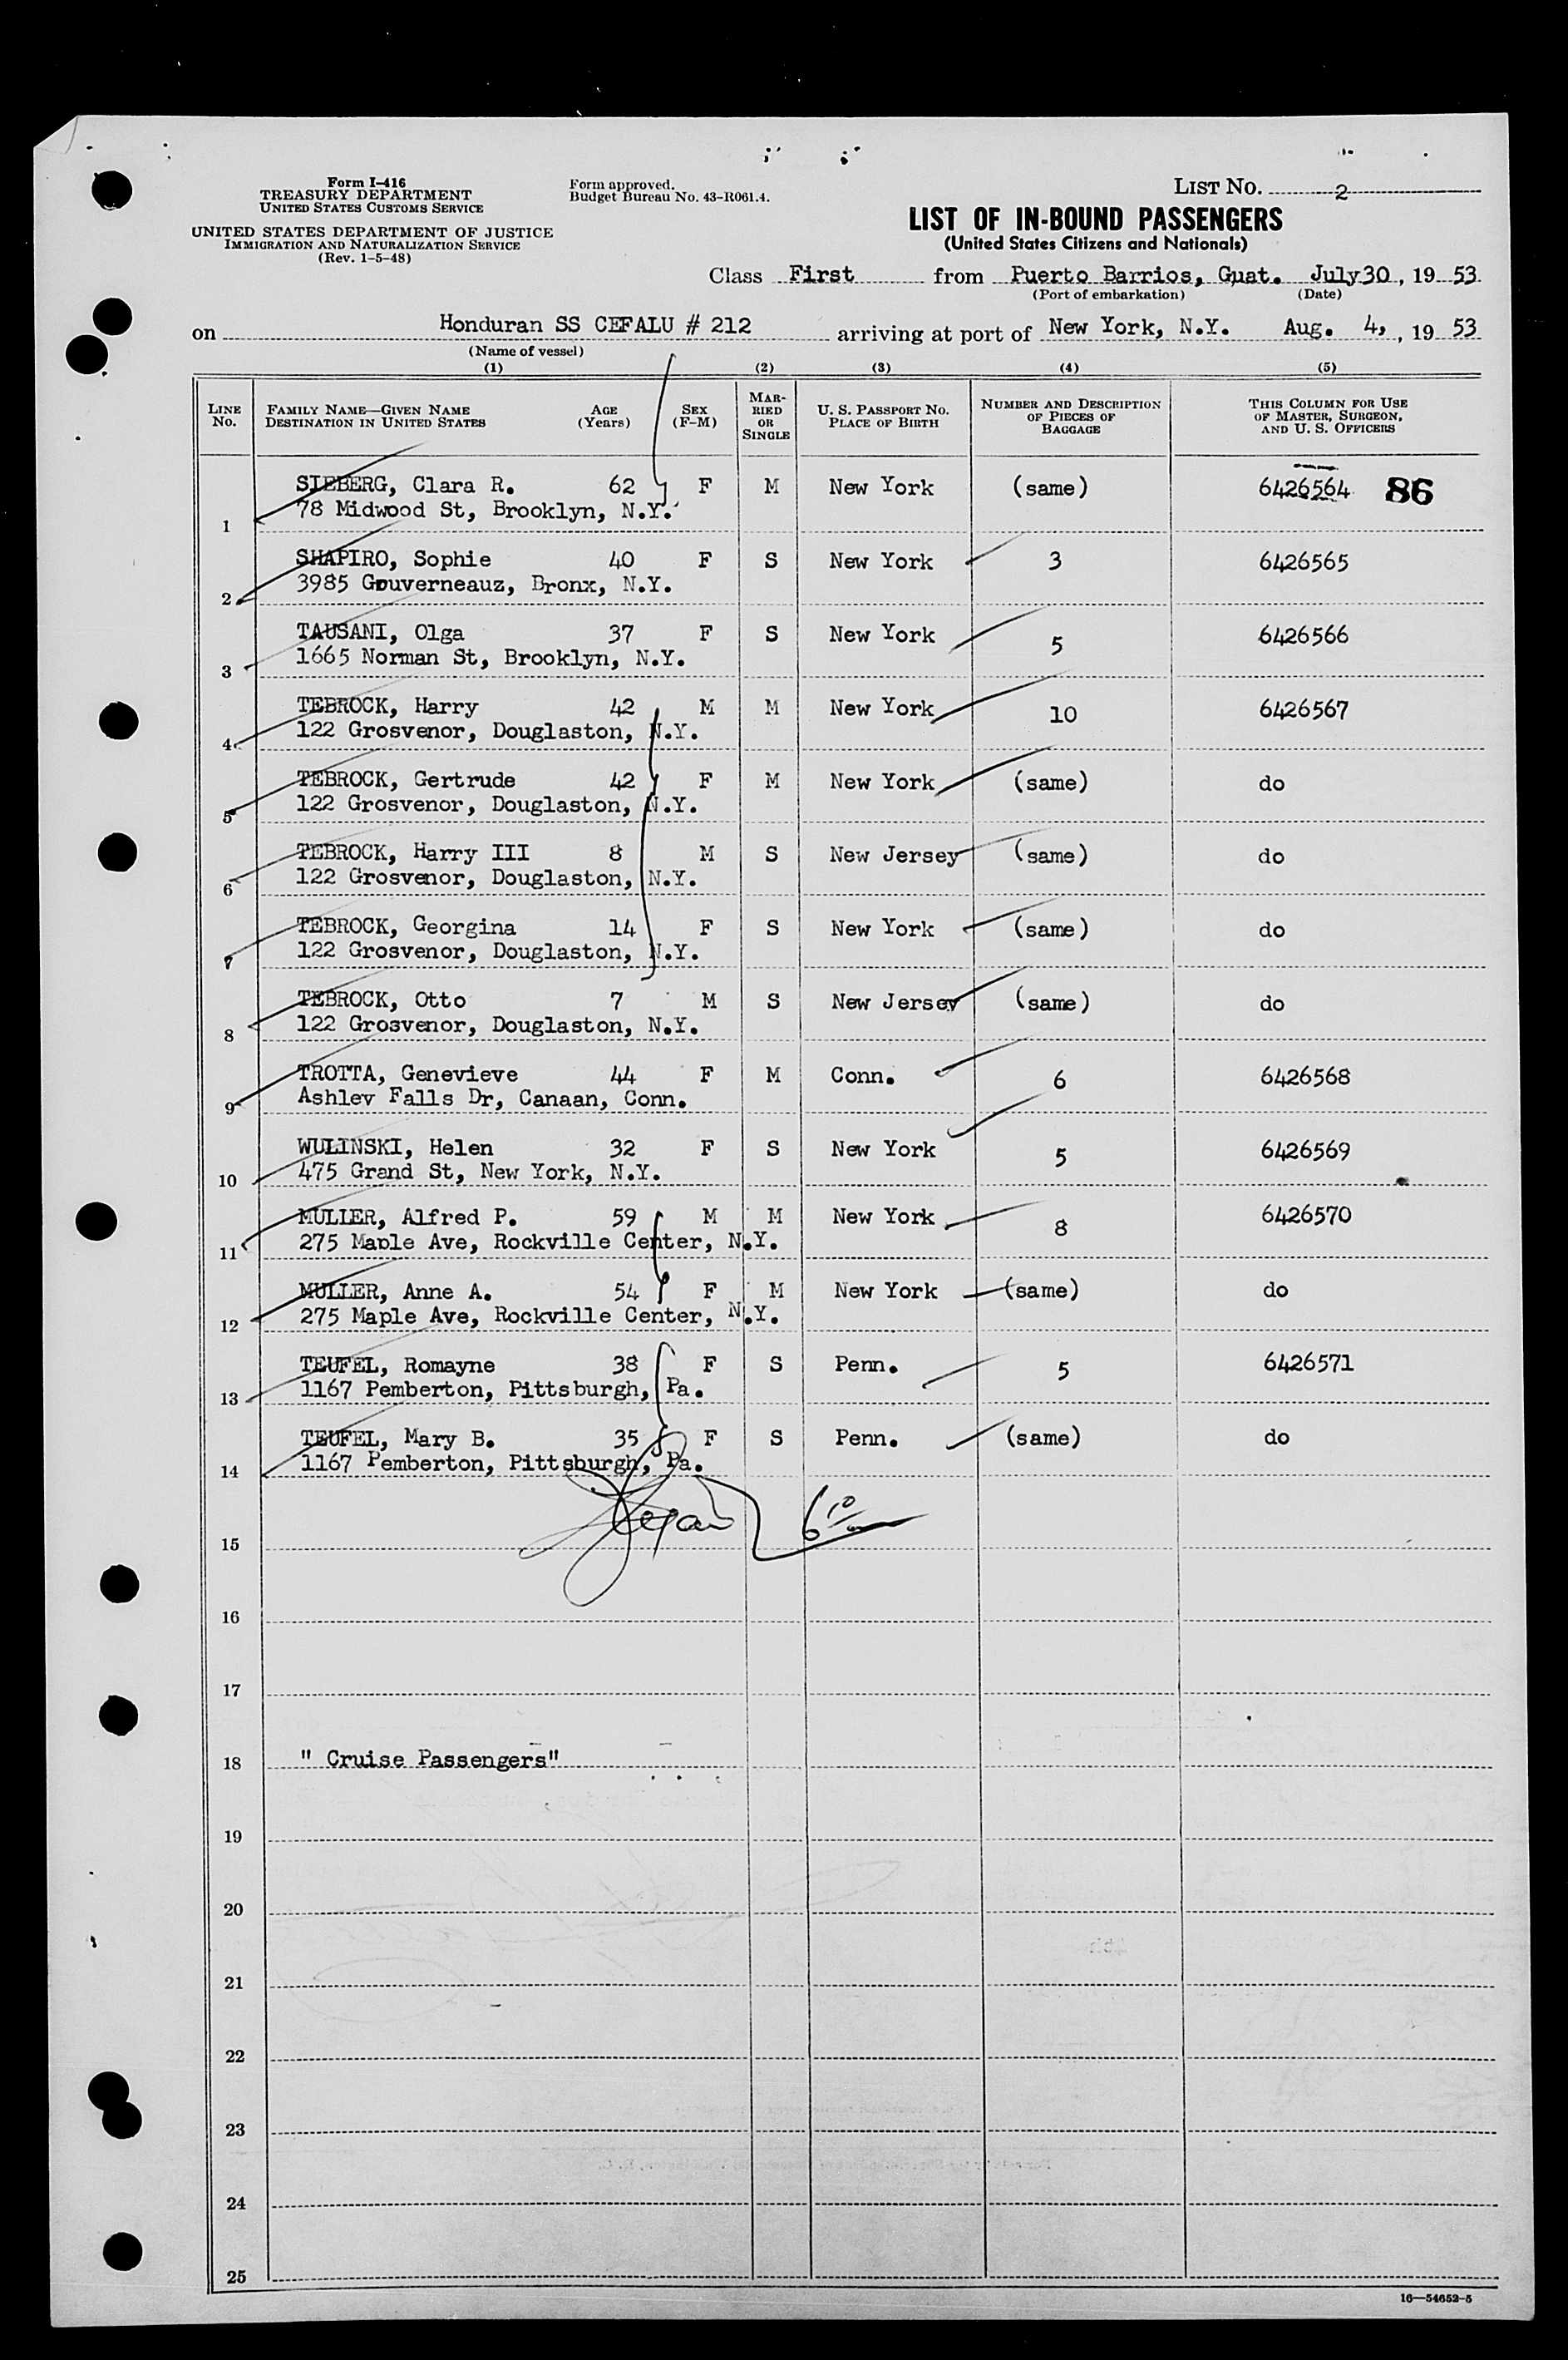 Form I-416
TREASURY DEPARTMENT
UNITED STATES CUSTOMS SERVICE
UNITED STATES DEPARTMENT OF JUSTICE
IMMIGRATION AND NATURALIZATION SERVICE
(Rev. 1-5-48)
Form approved.
Budget Bureau No. 43-R061.4.
LIST No. 2
LIST OF IN-BOUND PASSENGERS
(United States Citizens and Nationals)
Class First from Puerto Barrios, Guat. July 30, 19 53
(Port of embarkation) (Date)
on Honduran SS CEFALU # 212 arriving at port of New York, N.Y. Aug. 4, , 19 53
(Name of vessel)
(1) (2) (3) (4) (5)
LINE No. FAMILY NAME—GIVEN NAME DESTINATION IN UNITED STATES AGE (Years) SEX (F-M) MARRIED OR SINGLE U. S. PASSPORT No. PLACE OF BIRTH NUMBER AND DESCRIPTION OF PIECES OF BAGGAGE THIS COLUMN FOR USE OF MASTER, SURGEON, AND U. S. OFFICERS
SIEBERG, Clara R. 62 F M New York (same) 6426564 86
1 78 Midwood St, Brooklyn, N.Y.
SHAPIRO, Sophie 40 F S New York 3 6426565
2 3985 Gouverneauz, Bronx, N.Y.
TAUSANI, Olga 37 F S New York 5 6426566
3 1665 Norman St, Brooklyn, N.Y.
TEBROCK, Harry 42 M M New York 10 6426567
4 122 Grosvenor, Douglaston, N.Y.
TEBROCK, Gertrude 42 F M New York (same) do
5 122 Grosvenor, Douglaston, N.Y.
TEBROCK, Harry III 8 M S New Jersey (same) do
6 122 Grosvenor, Douglaston, N.Y.
TEBROCK, Georgina 14 F S New York (same) do
7 122 Grosvenor, Douglaston, N.Y.
TEBROCK, Otto 7 M S New Jersey (same) do
8 122 Grosvenor, Douglaston, N.Y.
TROTTA, Genevieve 44 F M Conn. 6 6426568
9 Ashley Falls Dr, Canaan, Conn.
WULINSKI, Helen 32 F S New York 5 6426569
10 475 Grand St, New York, N.Y.
MULLER, Alfred P. 59 M M New York 8 6426570
11 275 Maple Ave, Rockville Center, N.Y.
MULLER, Anne A. 54 F M New York (same) do
12 275 Maple Ave, Rockville Center, N.Y.
TEUFEL, Romayne 38 F S Penn. 5 6426571
13 1167 Pemberton, Pittsburgh, Pa.
TEUFEL, Mary B. 35 F S Penn. (same) do
14 1167 Pemberton, Pittsburgh, Pa.
15
16
17
18 " Cruise Passengers"
19
20
21
22
23
24
25
16—54652-5